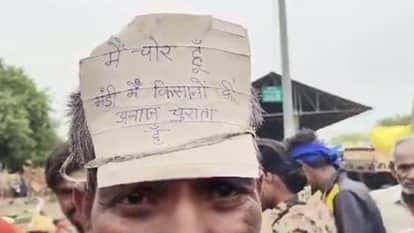 मैं चोर हूँ
मंडी में किसानों का
अनाज चुराता
हूँ